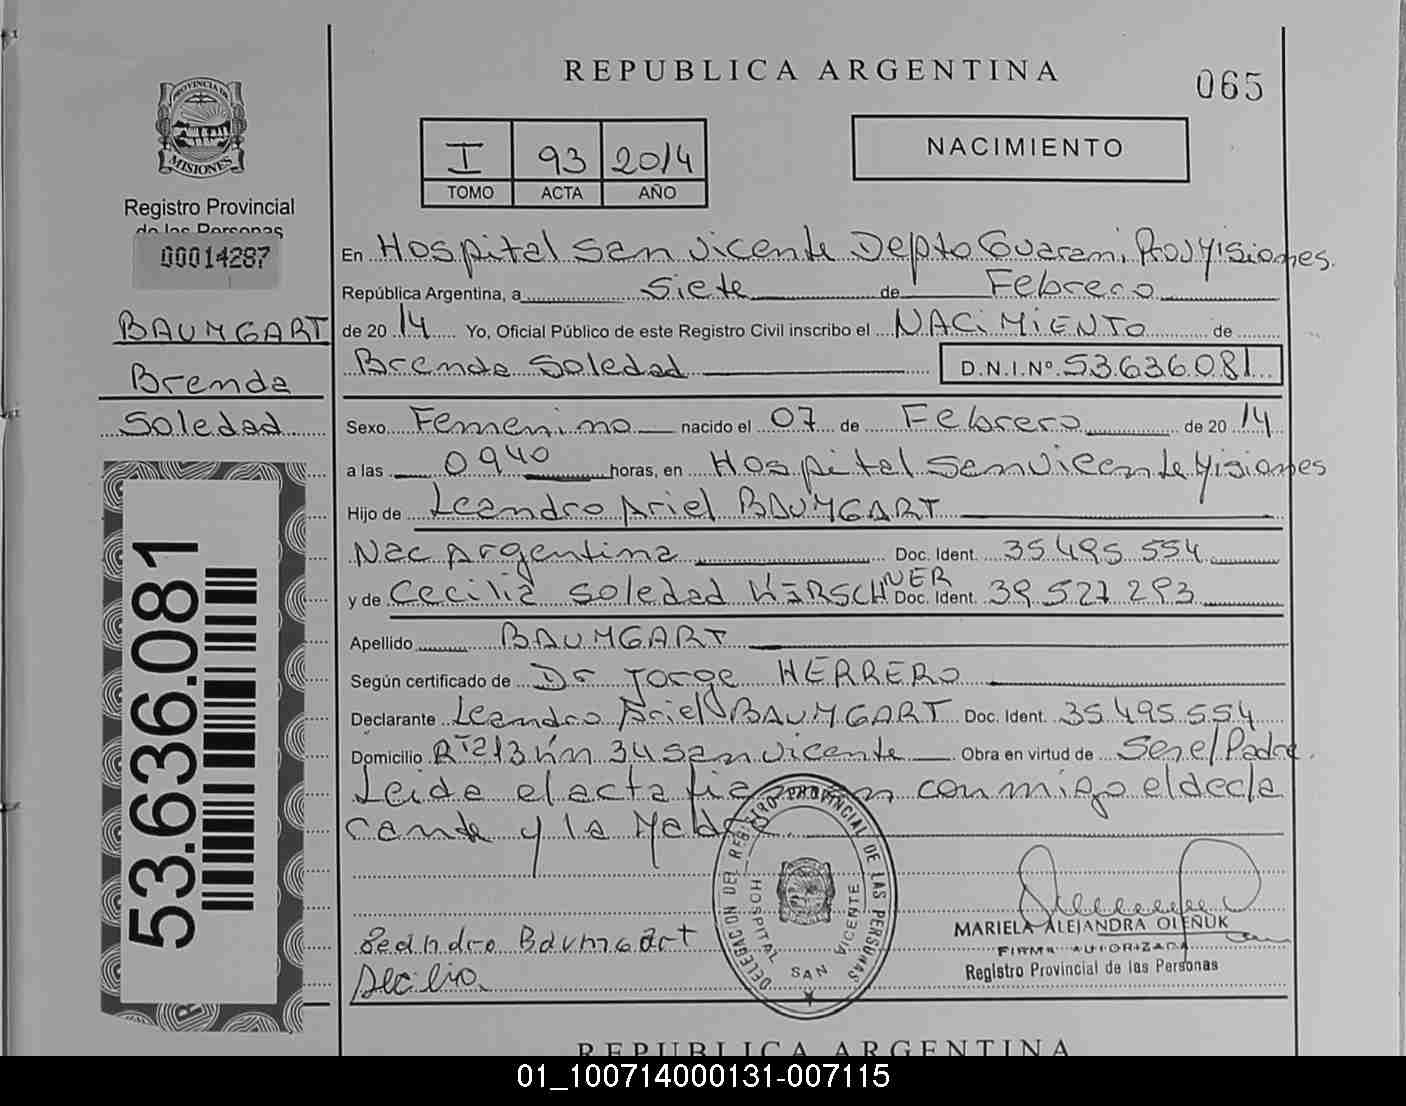 REPUBLICA ARGENTINA
065
PROVINCIA DE MISIONES
Registro Provincial
de las Personas
00014287
BAUMGART
Brenda
Soledad
53.636.081
I 93 2014
TOMO ACTA AÑO
NACIMIENTO
En Hospital San Vicente Depto Guarani Prov Misiones.
República Argentina, a Siete de Febrero
de 2014 Yo, Oficial Público de este Registro Civil inscribo el NACIMIENTO de
Brenda Soledad D.N.I.Nº 53.636.081
Sexo Femenino nacido el 07 de Febrero de 2014
a las 0940 horas, en Hospital San Vicente Misiones
Hijo de Leandro Ariel BAUMGART
Nac Argentina Doc. Ident. 35.495.554
y de Cecilia Soledad KIRSCHNER Doc. Ident. 39.527.293
Apellido BAUMGART
Según certificado de Dr Jorge HERRERO
Declarante Leandro Ariel BAUMGART Doc. Ident. 35.495.554
Domicilio RT 213 Km 34 San Vicente Obra en virtud de Ser el Padre.
Leida el acta firman conmigo el decla
rante y la Madre
DELEGACION DEL REGISTRO PROVINCIAL DE LAS PERSONAS
HOSPITAL SAN VICENTE
Leandro Baumgart
MARIELA ALEJANDRA OLEÑUK
FIRMA AUTORIZADA
Registro Provincial de las Personas
REPUBLICA ARGENTINA
01_100714000131-007115